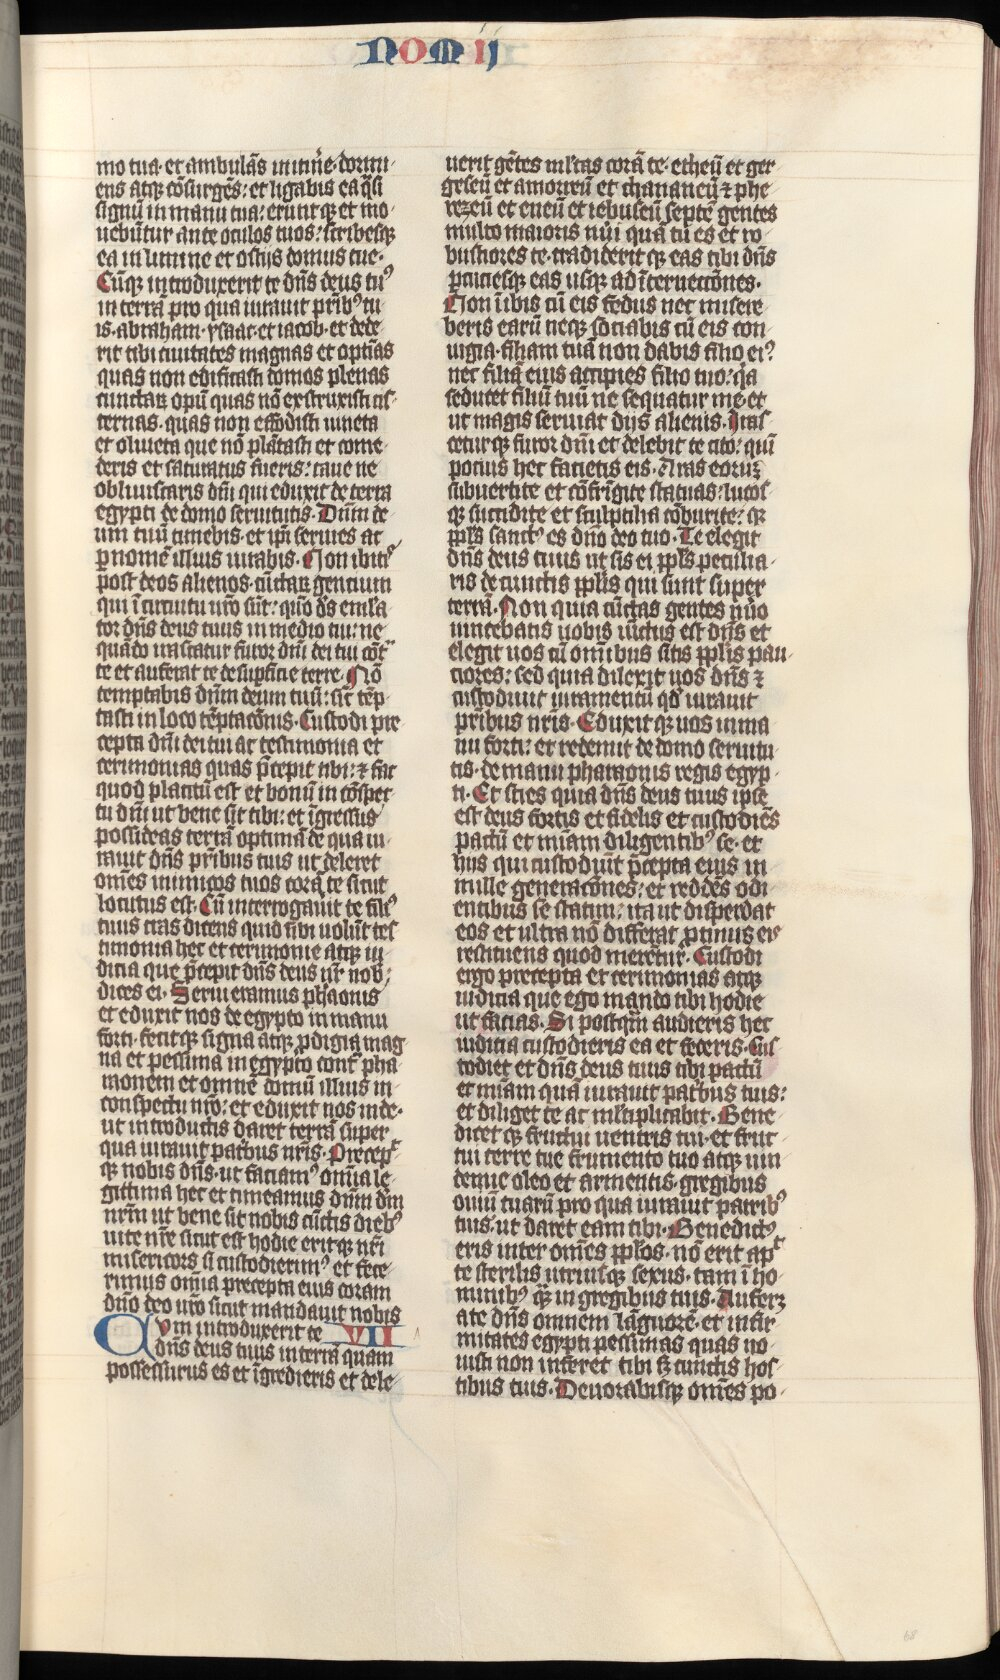 nomij
mo tua· et ambulās in itin̄e· dormi
ens atq; cōsurgēs: et ligabis ea q̄si
signū in manu tua: erunt q; et mo
uebūtur ante oculos tuos: scribesq;
ea in limine et ostijs domus tue·
Cūq; introduxerit te dn̄s deus tu9
in terrā pro qua iurauit prīb9 tu
is· abraham· ysaac· et iacob· et dede
rit tibi ciuitates magnas et optīas
quas non edificasti domos plenas
cunctarꝫ opū quas nō exstruxisti cis
ternas· quas non effodisti vineta
et oliueta que nō plātasti et come
deris et saturatus fueris: caue ne
obliuiscaris dn̄i qui eduxit de terra
egypti de domo seruitutis· Dn̄m de
um tuū timebis· et ip̄i seruies ac
ꝑ nomē illius iurabis· Non ibit9
post deos alienos· cūctaꝝ gencium
qui ī circuitu vr̄o sūt: qm̄ d̄s emla
tor dn̄s deus tuus in medio tui: ne
quādo irascatur furor dn̄i dei tui cōt
te et auferat te de supficie terre· Nō
temptabis dn̄m deum tuū: sic tēp
tasti in loco tēptacōnis· Custodi pre
cepta dn̄i dei tui ac testimonia et
cerimonias quas p̄cepit tibi: ⁊ fac
quod placitū est et bonū in cōspec
tu dn̄i ut bene sit tibi: et īgressus
possideas terrā optimā de qua iu
rauit dn̄s prībus tuis ut deleret
omēs inimicos tuos corā te sicut
locutus est· Cū interrogauit te fili9
tuus cras dicens quid sibi volūt tes
timonia hec et cerimonie atq; iu
dicia que p̄cepit dn̄s deus nr̄ nob:
dices ei· Serui eramus phāonis
et eduxit nos de egypto in manu
forti· fecitq; signa atq; ꝓdigia mag
na et pessima in egypto cont̄ pha
raonem et omnē domū illius in
conspectu nr̄o: et eduxit nos inde·
ut introductis daret terrā super
qua iurauit patribus nr̄is· Precep
q; nobis dn̄s· ut faciam9 omīa le
gittima hec et timeamus dn̄m dm̄
nr̄m ut bene sit nobis cūctis dieb9
uite nr̄e sicut est hodie eritq; nr̄i
misericors si custodierim9 et fece
rimus om̄ia precepta eius coram
dn̄o deo nr̄o sicut mandauit nobis
Cvm introduxerit te VII
dn̄s deus tuus in terrā quam
possessurus es et īgredieris et dele
uerit gētes ml̄tas corā te· etheū et ger
geseū et amorreū et chananeū ⁊ phe
rezeū et eueū et iebuseū septē gentes
multo maioris nūi quā tu es et ro
bustiores te· tradiderit q; eas tibi dn̄s
ꝑcuciesq; eas usq; ad īterneccōnes·
Non īibis cū eis fedus nec misere
beris earū neq; sociabis cū eis con
iugia· filiam tuā non dabis filio ei9
nec filiā eius accipies filio tuo: q̄a
seducet filiū tuū ne sequatur me et
ut magis seruiat dijs alienis· Iras
cetur q; furor dn̄i et delebit te cito: quī
pocius hec facietis eis· Aras eoruꝫ
subuertite et cōfrīgite statuas: lucos
q; succidite et sculptilia cōburite: q̄
ppl̄s sanct9 es dn̄o deo tuo· Te elegit
dn̄s deus tuus ut sis ei ppl̄s peculia
ris de cunctis pplis qui sunt super
terrā· Non quia cūctas gentes nūo
uincebatis uobis iūctus est dn̄s et
elegit uos cū omībus sitis pplis pau
ciores: sed quia dilexit uos dn̄s ⁊
custodiuit iuramentū qd̄ iurauit
prībus nr̄is· Eduxit q; uos in ma
nu forti: et redemit de domo seruitu
tis· de manu pharaonis regis egyp
ti· Et scies quia dn̄s deus tuus ipse
est deus fortis et fidelis et custodiēs
pactū et mīam diligentib9 se· et
hiis qui custodiūt p̄cepta eius in
mille generacōnes: et reddēs odi
entibus se statim: ita ut disperdat
eos et ultra nō differat ꝓtinus eis
restituens quod merētur· Custodi
ergo precepta et cerimonias atq;
iudicia que ego mando tibi hodie
ut facias· Si postqm̄ audieris hec
iudicia custodieris ea et feceris· Cus
todiet et dn̄s deus tuus tibi pactū
et mīam quā iurauit patribus tuis:
et diliget te ac ml̄tiplicabit· Bene
dicet q; fructui uentris tui· et fruc
tui terre tue frumento tuo atq; uin
demie oleo et armentis· gregibus
ouiū tuarū pro qua iurauit patrib9
tuis· ut daret eam tibi· Benedict9
eris inter omēs pplos· nō erit ap̄t
te sterilis utriusq; sexus· tam ī ho
minib9 q̄ in gregibus tuis· Auferꝫ
a te dn̄s omnem lāguorē· et infir
mitates egypti pessimas quas no
uisti non inferet tibi sꝫ cunctis hos
tibus tuis· Deuorabisq; omēs po
68